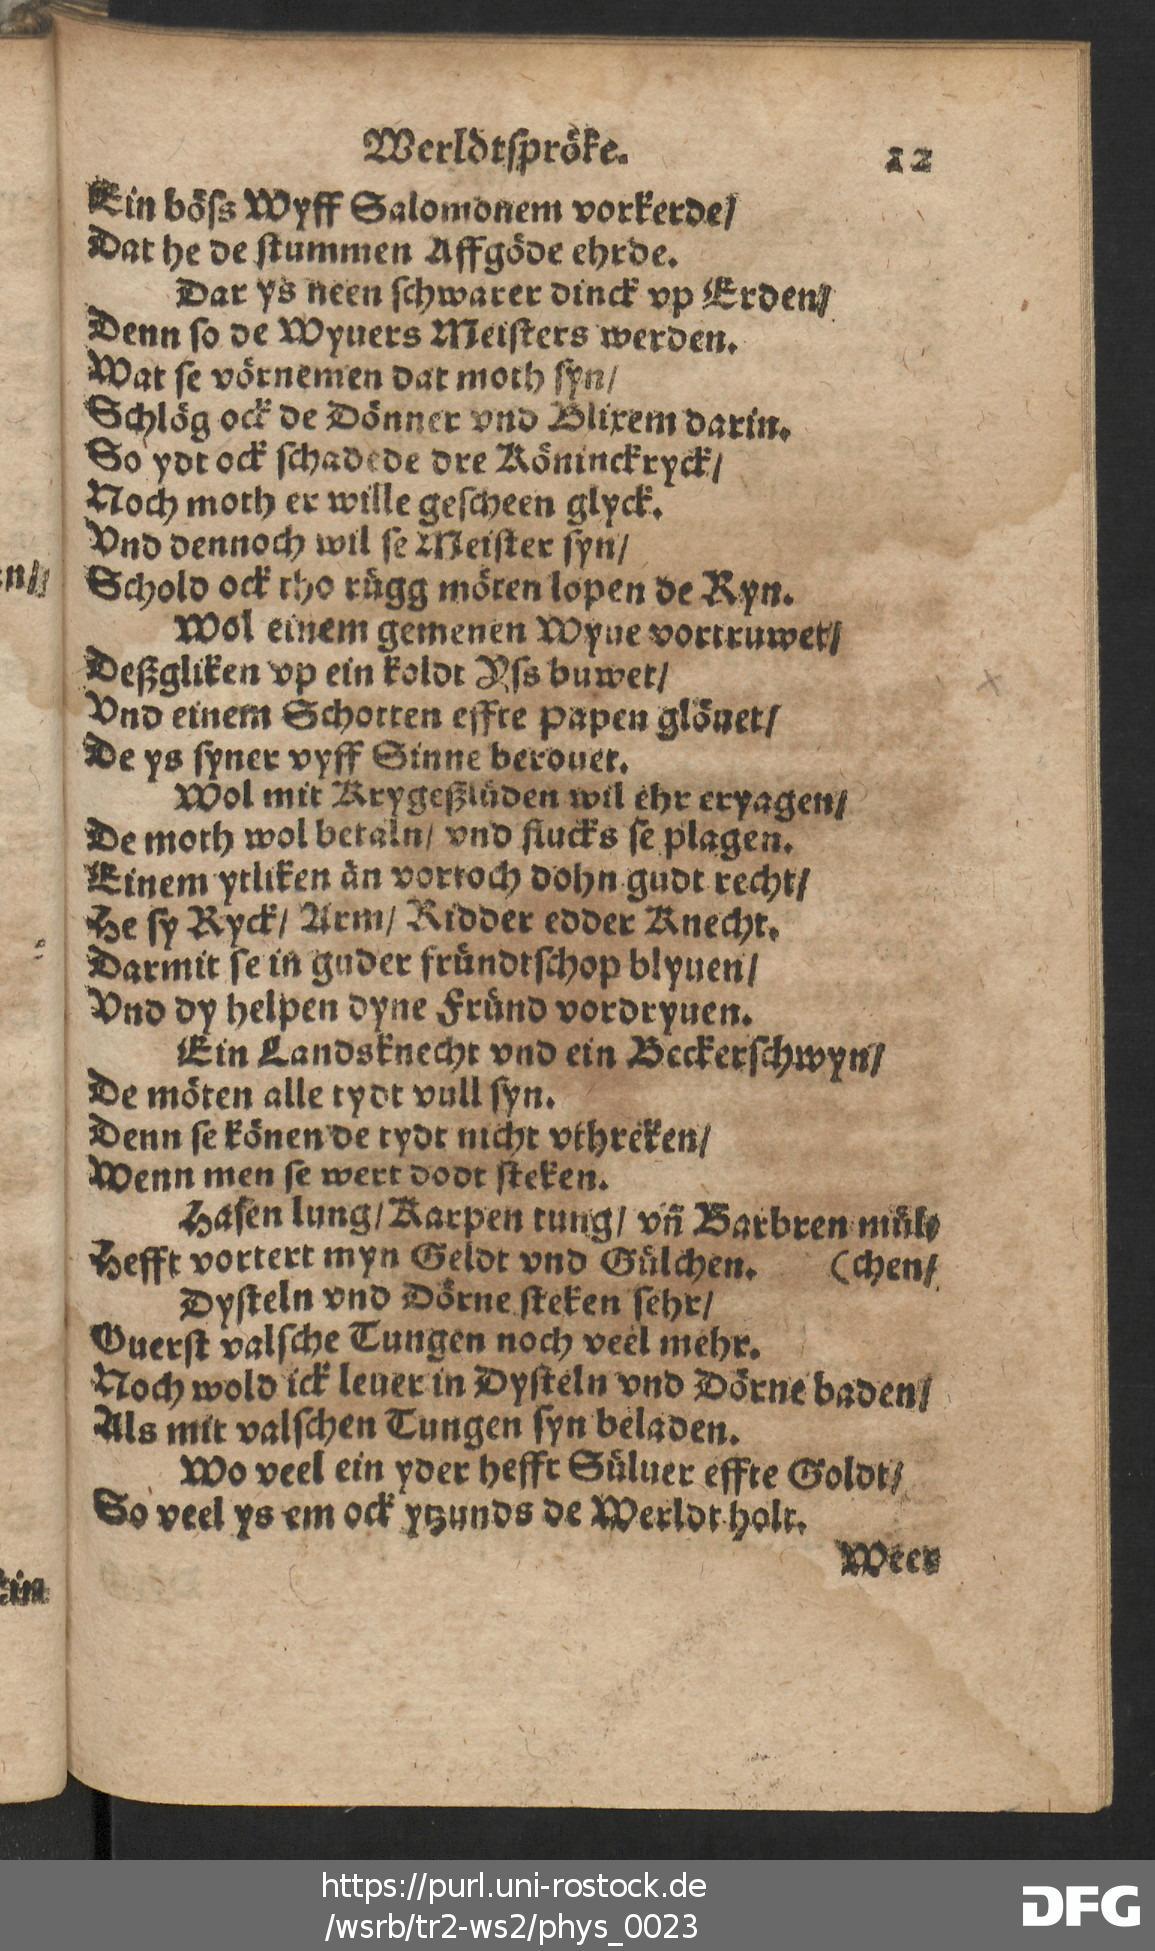 Werldtspröke. 12
Ein böſs Wyff Salomonem vorkerde/
Dat he de ſtummen Affgöde ehrde.
Dar ys neen ſchwarer dinck vp Erden/
Denn ſo de Wyuers Meiſters werden.
Wat ſe vörnemen dat moth ſyn/
Schlög ock de Dönner vnd Blixem darin.
So ydt ock ſchadede dre Köninckryck/
Noch moth er wille geſcheen glyck.
Vnd dennoch wil ſe Meiſter ſyn/
Schold ock tho rügg möten lopen de Ryn.
Wol einem gemenen Wyue vortruwet/
Deßgliken vp ein koldt Yſs buwet/
Vnd einem Schotten effte Papen glöuet/
De ys ſyner vyff Sinne berouet.
Wol mit Krygeßlüden wil ehr eryagen/
De moth wol betaln/ vnd flucks ſe plagen.
Einem ytliken ân vortoch dohn gudt recht/
He ſy Ryck/ Arm/ Ridder edder Knecht.
Darmit ſe in guder fründtſchop blyuen/
Vnd dy helpen dyne Fründ vordryuen.
Ein Landsknecht vnd ein Beckerſchwyn/
De möten alle tydt vull ſyn.
Denn ſe könen de tydt nicht vthreken/
Wenn men ſe wert dodt ſteken.
Haſen lung/ Karpen tung/ vn̄ Barbren mül⸗
Hefft vortert myn Geldt vnd Gülchen. (chen/
Dyſteln vnd Dörne ſteken ſehr/
Ouerſt valſche Tungen noch veel mehr.
Noch wold ick leuer in Dyſteln vnd Dörne baden/
Als mit valſchen Tungen ſyn beladen.
Wo veel ein yder hefft Süluer effte Goldt/
So veel ys em ock ytzunds de Werldt holt.
Weer
https://purl.uni-rostock.de
/wsrb/tr2-ws2/phys_0023
DFG